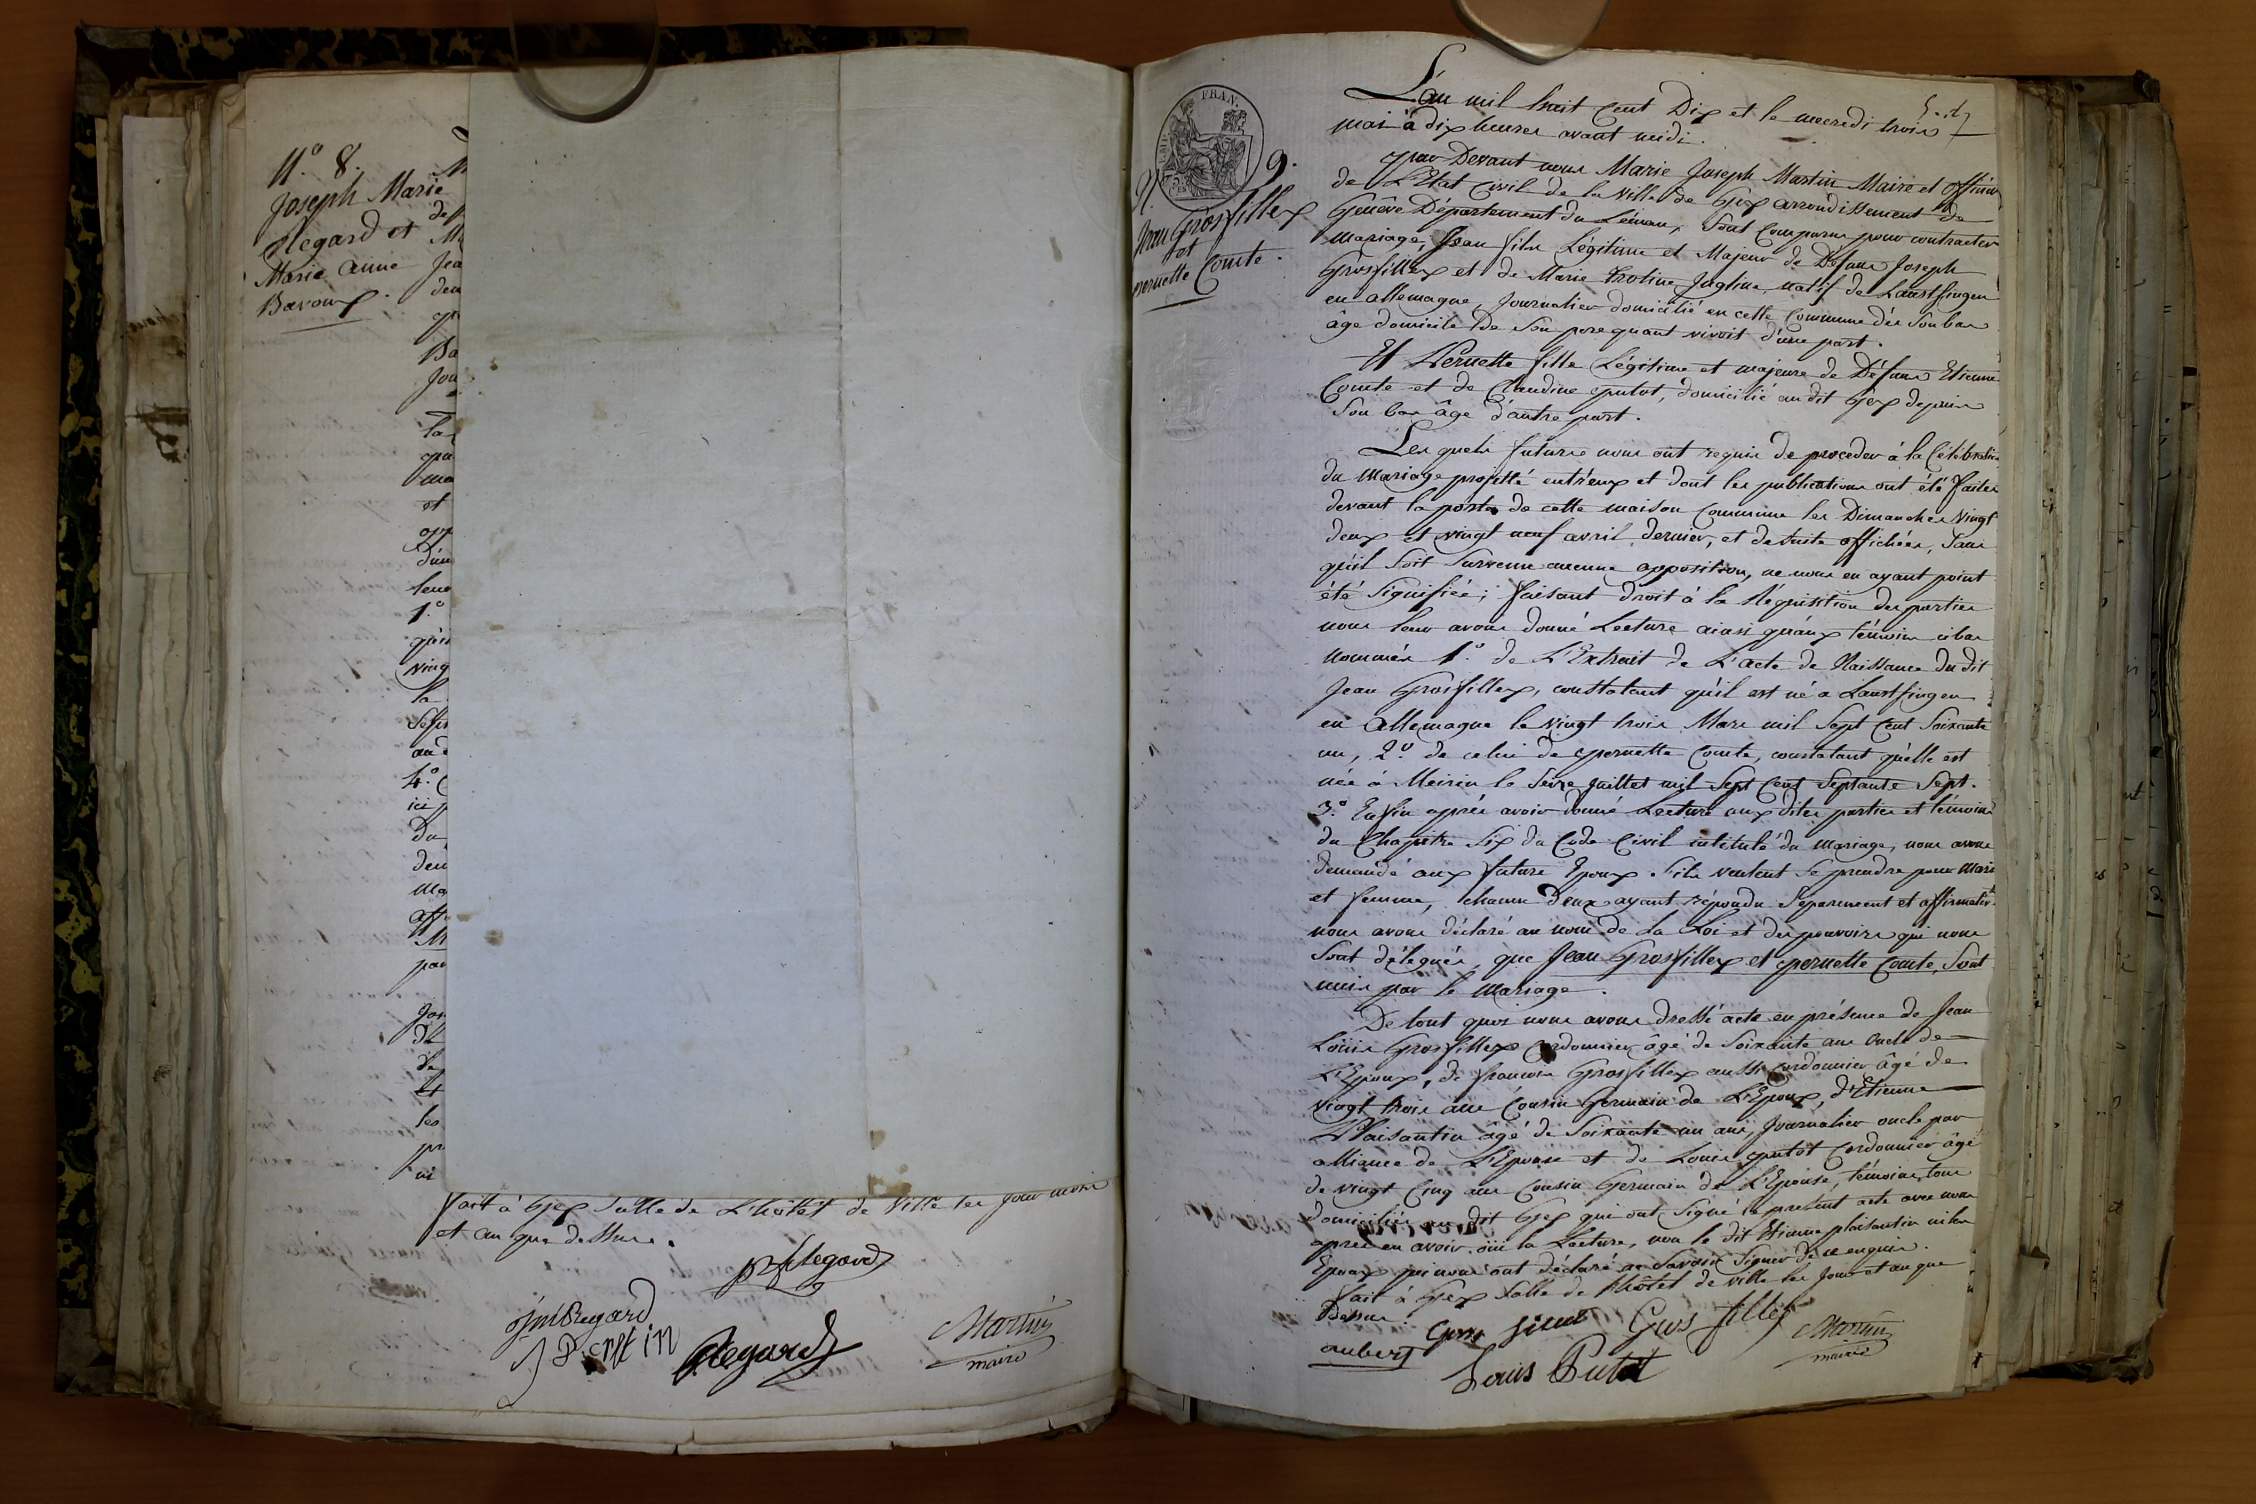 N.° 8.
Joseph Marie
Regard et
Marie Anne
Bavoux.
1.°
ving
la
4.°
ici
Du
et
les
fait à Gex Salle de L'hôtel de Ville les jour mois
et an que dessus.
Martin
maire
Regard
EMP. FRAN.
N. 9.
Jean Grosfillex
et
pernette Comte.
L'an mil huit Cent Dix et le mecredi trois
mai à dix heures avant midi.
par Devant nous Marie Joseph Martin Maire et officier
de L'Etat Civil de la Ville de Gex arrondissement de
Genêve Département du Léman, Sont Comparus pour contracter
Mariage, Jean fils Légitime et Majeur de Défunt Joseph
Grosfillex et de Marie natif de Lautfingen
en allemagne, Journalier domicilié en cette Commune dès Son bas
âge domicile de Son pere quant vivoit d'une part.
Et Pernette fille Légitime et majeure de Défunt Etienne
Comte et de Claudine putot, domicilié au dit Gex depuis
Son bas âge d'autre part.
Les quels futurs nous ont requis de proceder à la Célébration
du Mariage projetté entr'eux et dont les publications ont été faites
devant la porte de cette maison Commune les Dimanches Vingt
deux et vingt neuf avril dernier, et de suite affichées, Sans
qu'il Soit Survenu aucune opposition, ne nous en ayant point
été Signifiée; faisant droit à la Réquisition des parties
nous leur avons donné Lecture ainsi qu'aux témoins cibas
nommés 1.° de L'Extrait de L'acte de Naissance du dit
Jean Grosfillex, constatant qu'il est né a Lautfingen
en allemagne le Vingt trois Mars mil Sept Cent Soixante
un, 2.° de celui de pernette Comte, constatant qu'elle est
née à Meirin le Seize Juillet mil Sept Cent Septante Sept.
3.° Enfin après avoir donné Lecture aux dites parties et témoins
du Chapitre Six du Code Civil intitulé du Mariage, nous avons
demandé aux futurs Epoux S'ils veulent Se prendre pour Mari
et femme, chacun d'eux ayant répondu Séparement et affirmativt.
nous avons déclaré au nom de La Loi et des pouvoirs qui nous
Sont délegués, que Jean Grosfillex et pernette Comte, Sont
unis par le Mariage.
De tout quoi nous avons dressé acte en présence de Jean
Loüis Grosfillex Cordonnier âgé de Soixante ans oncle de
L'Epoux, de francois Grosfillex aussi Cordonnier âgé de
Vingt trois ans Cousin Germain de L'Epoux, d'Etienne
Plaisantin âgé de Soixante un ans, Journalier oncle par
alliance de L'Epouse et de Louis putot Cordonnier âgé
de vingt Cinq ans Cousin Germain de L'Epouse, témoins tous
domiciliés au dit Gex qui ont Signé le présent acte avec nous
après en avoir oüi la Lecture, non le dit Etienne plaisantin ni les
Epoux qui nous ont déclaré ne Savoir Signer de ce enquis.
fait à Gex Salle de L'hôtel de ville les Jour et an que
Dessus.
Gros fillex
Martin
maire
aubert
Louis Putot